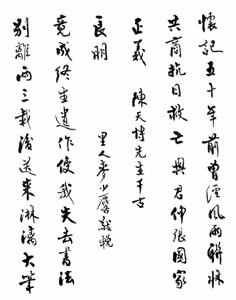 懷記五十年前曾經風雨聯床
共商抗日救亡與君伸張國家
正義
陳天博先生千古
別離兩三載後送來淋漓大筆
竟成終生遺作使我失去書法
良朋
里人麥少麐敬輓